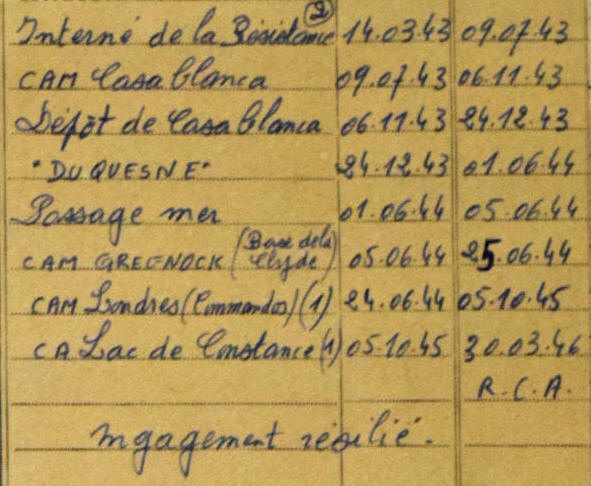 (2)
Interné de la Résistance 14.03.43 09.07.43
CAM Casablanca 09.07.43 06.11.43
Dépôt de Casablanca 06.11.43 24.12.43
"DUQUESNE" 24.12.43 01.06.44
Passage mer 01.06.44 05.06.44
CAM GREENOCK (Base de la Clyde) 05.06.44 25.06.44
CAM Londres (Commandos) (1) 24.06.44 05.10.45
CA Lac de Constance (1) 05.10.45 30.03.46
R.C.A.
ngagement résilié.